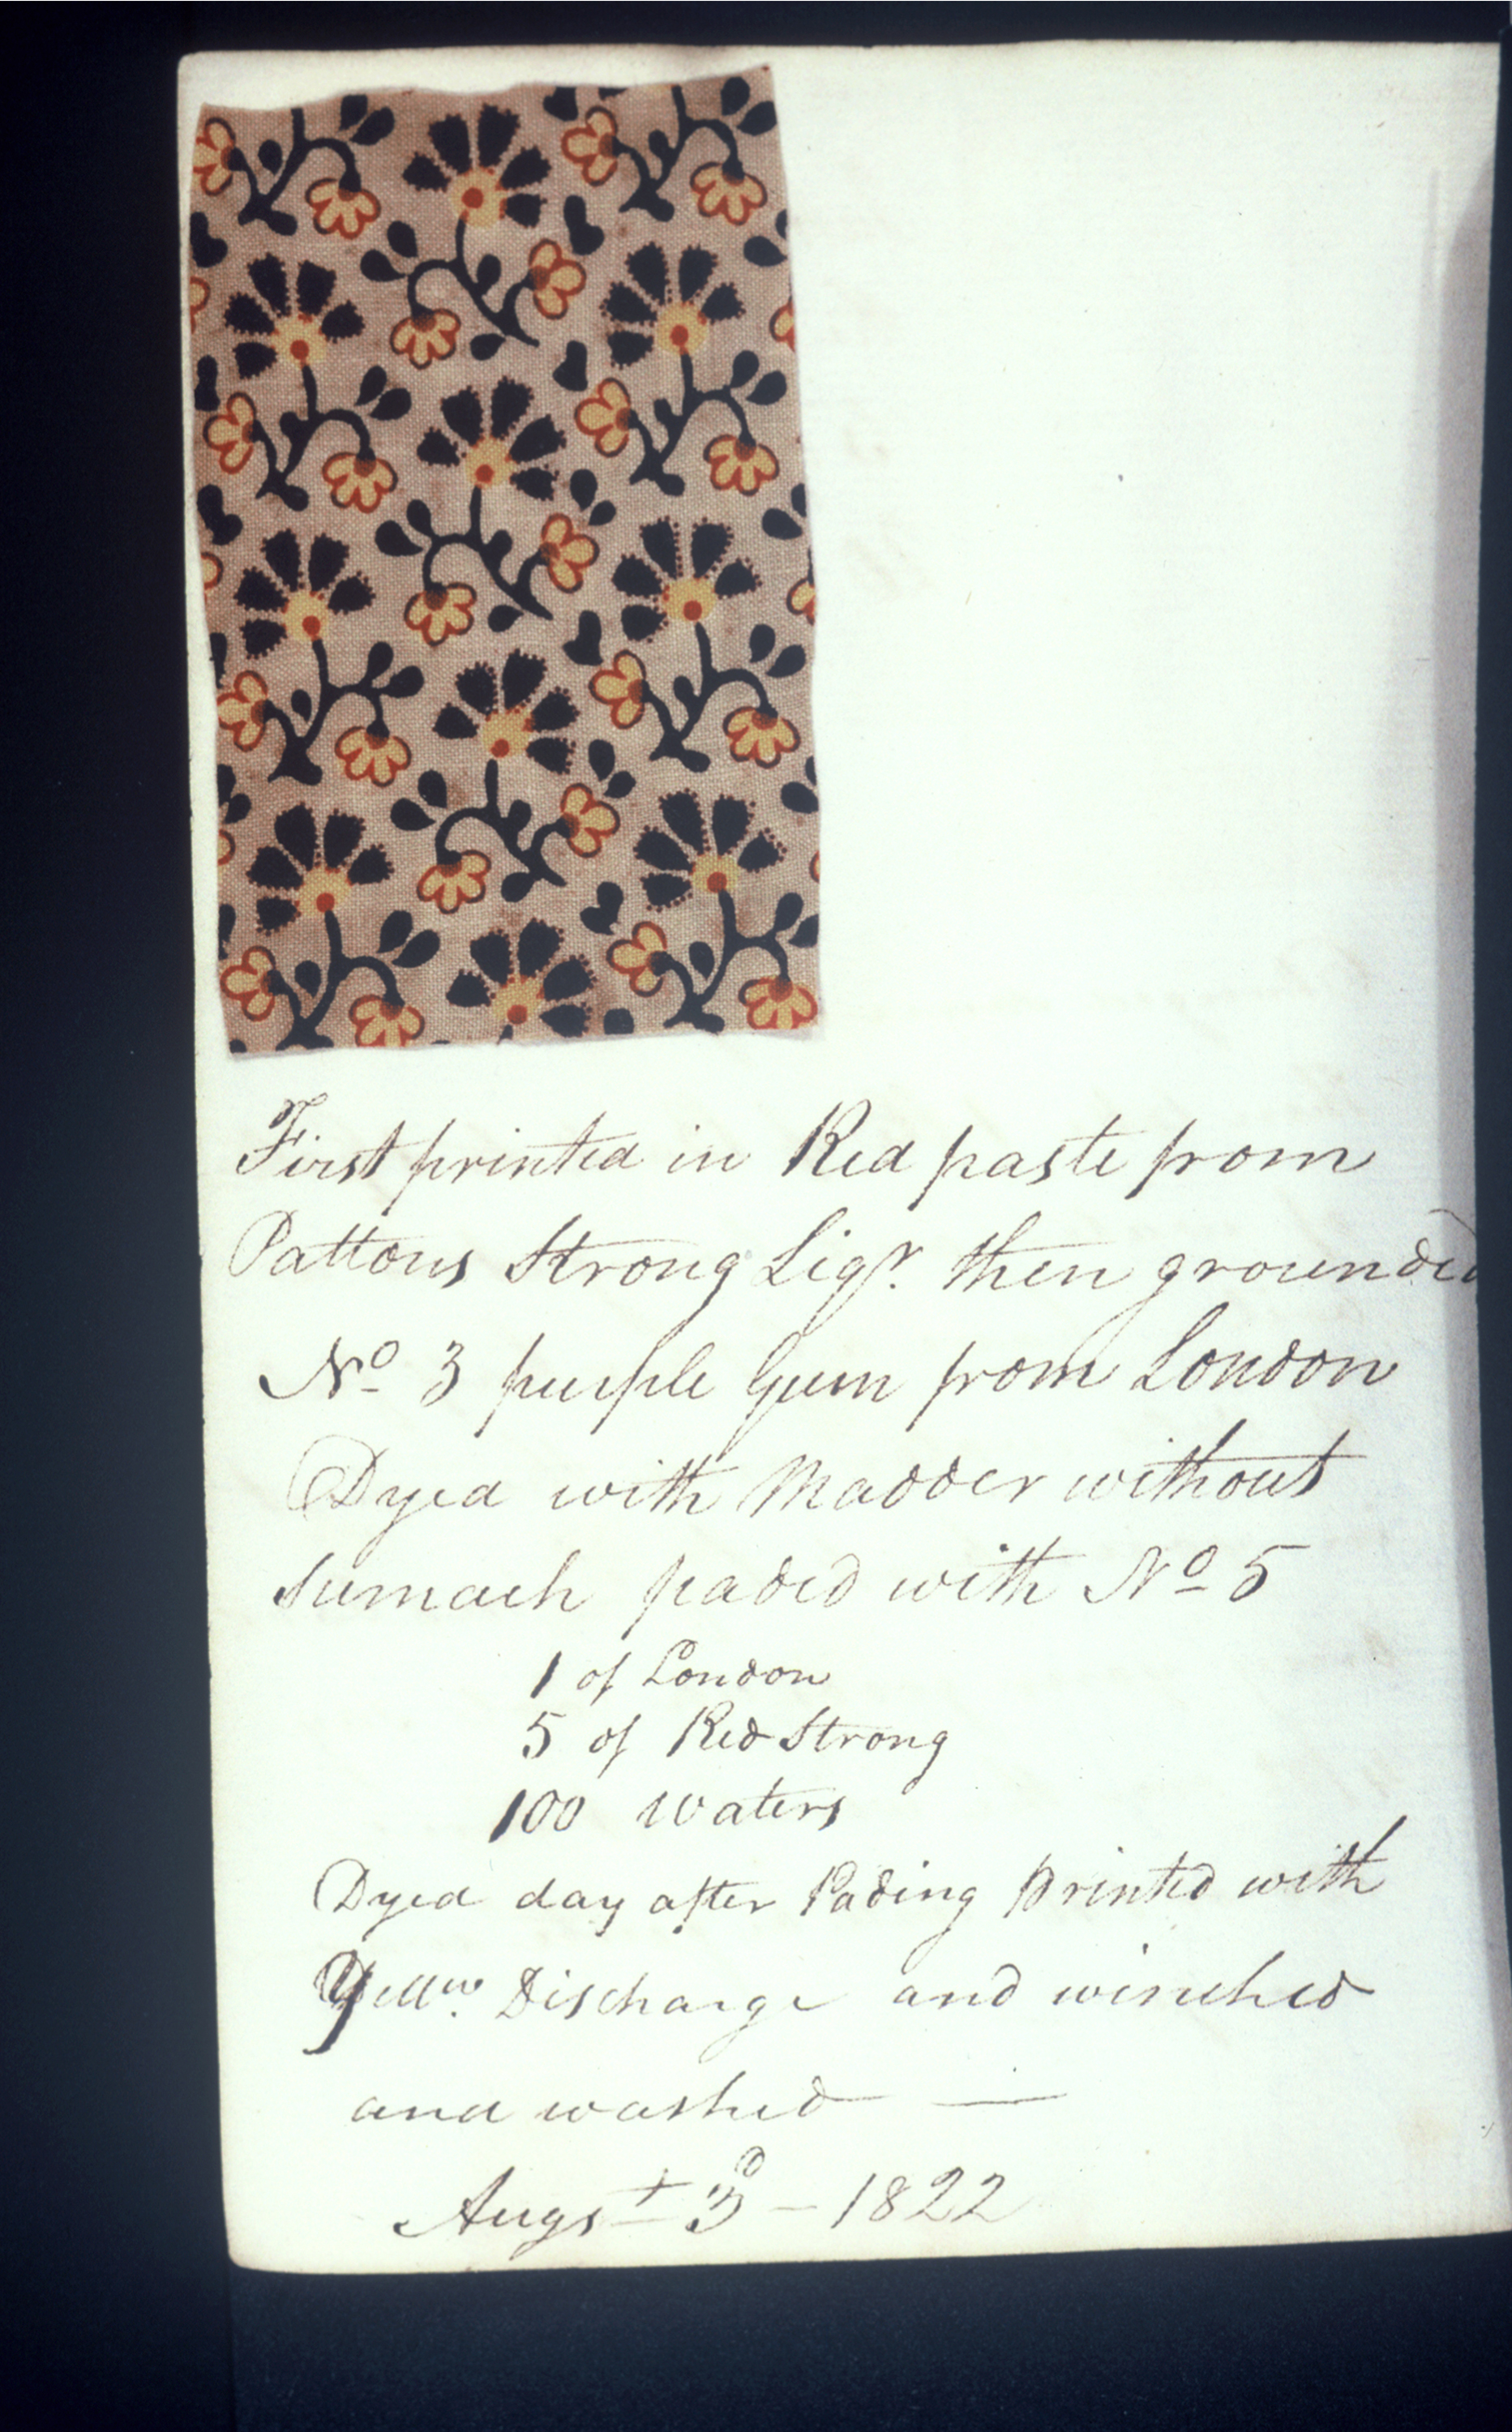 First printed in Red paste from
Pattons Strong Liqr. then grounded
No 3 purple Gum from London
Dyed with Madder without
Sumach paded with No 5
1 of London
5 of Red Strong
100 Waters
Dyed day after Pading Printed with
Yellw. Discharge and winched
and washed —
Augst 3d – 1822